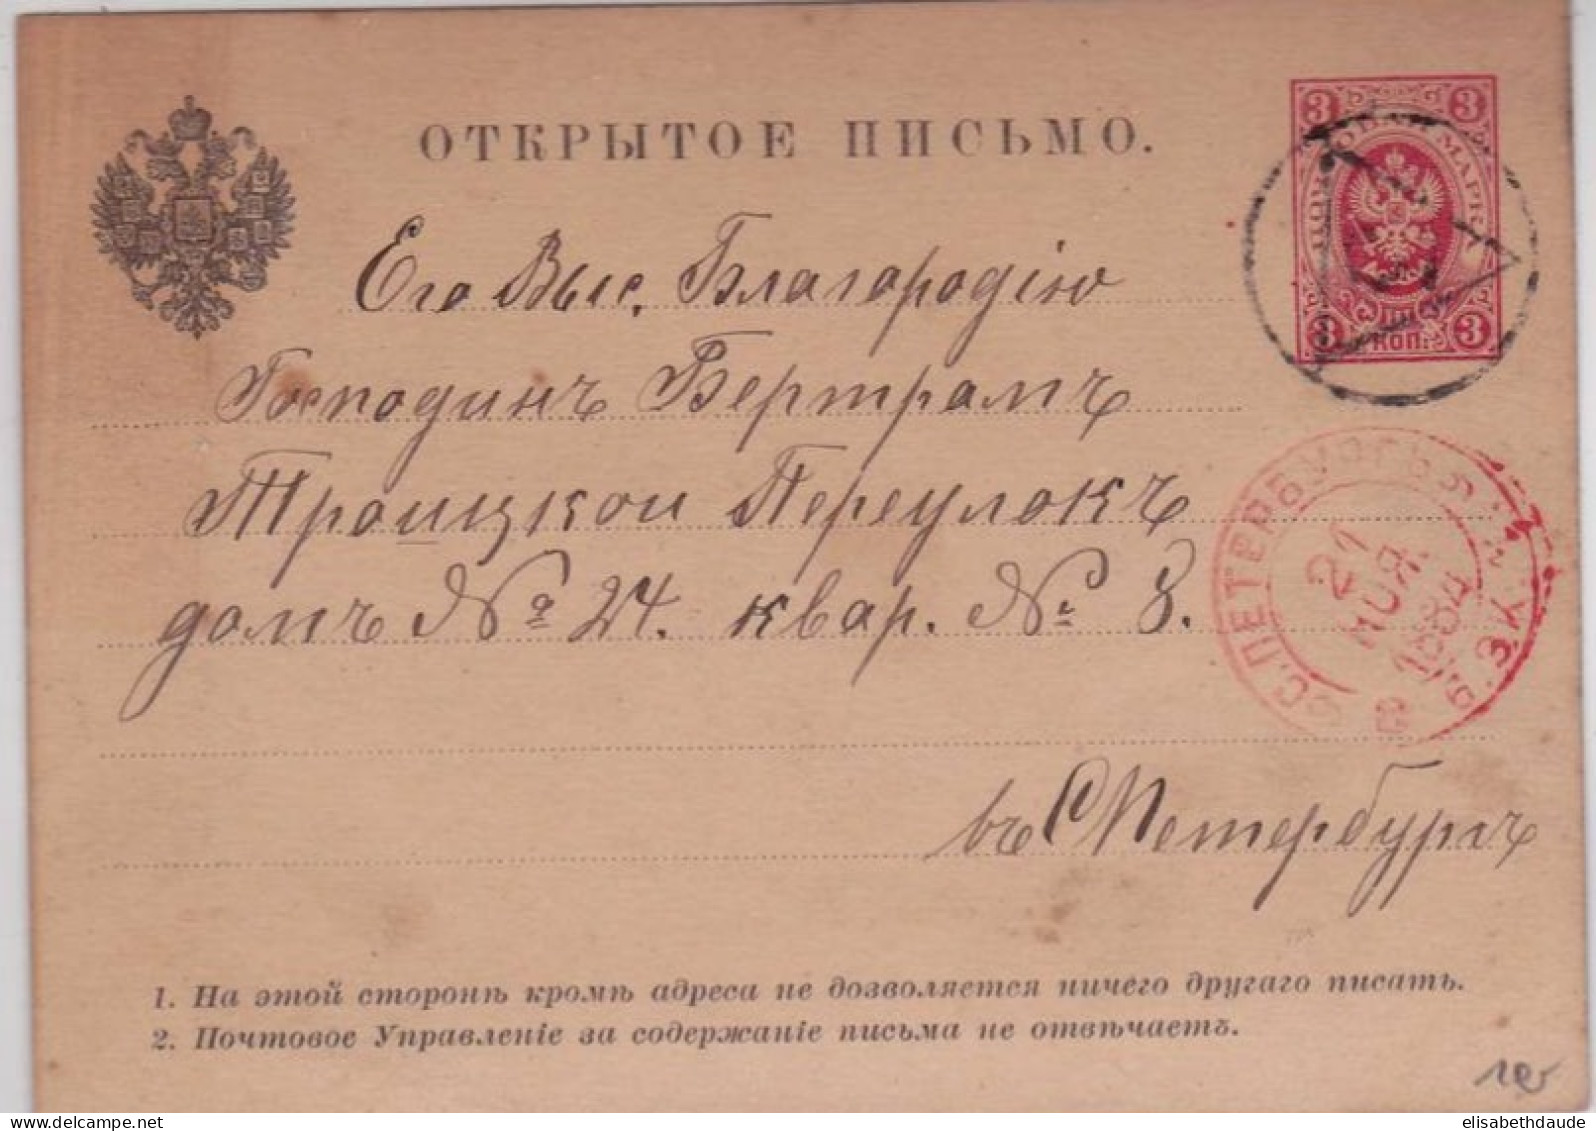 ОТКРЫТОЕ ПИСЬМО.
3 3
ПОЧТОВАЯ МАРКА
3 КОП. 3
Его Выс. Благородію
Господинъ Бертрамъ
Троицкои Переулокъ
домъ № 24. квар. № 8.
С.ПЕТЕРБУРГЪ
21
НОЯ.
1884
въ С Петербургъ
1. На этой сторонѣ кромѣ адреса не дозволяется ничего другаго писать.
2. Почтовое Управленіе за содержаніе письма не отвѣчаетъ.
elisabethdaude